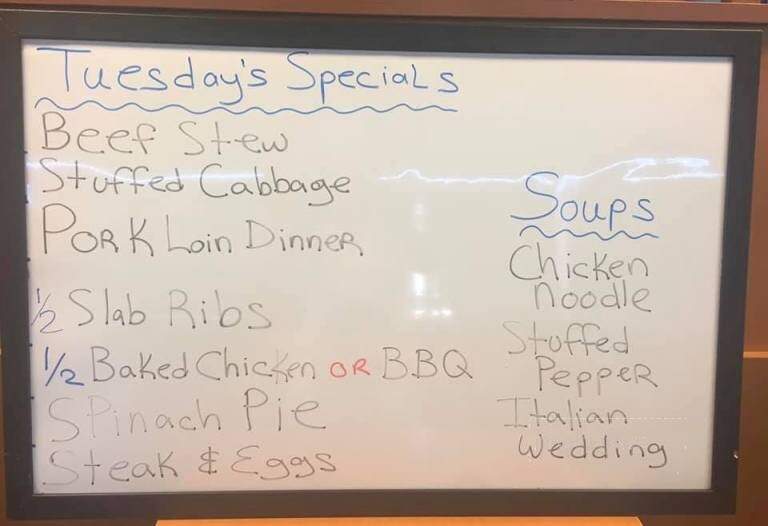 Tuesday's Specials
Beef Stew
Stuffed Cabbage
Pork Loin Dinner
1/2 Slab Ribs
1/2 Baked Chicken OR BBQ
Spinach Pie
Steak & Eggs
Soups
Chicken
Noodle
Stuffed
Pepper
Italian
Wedding